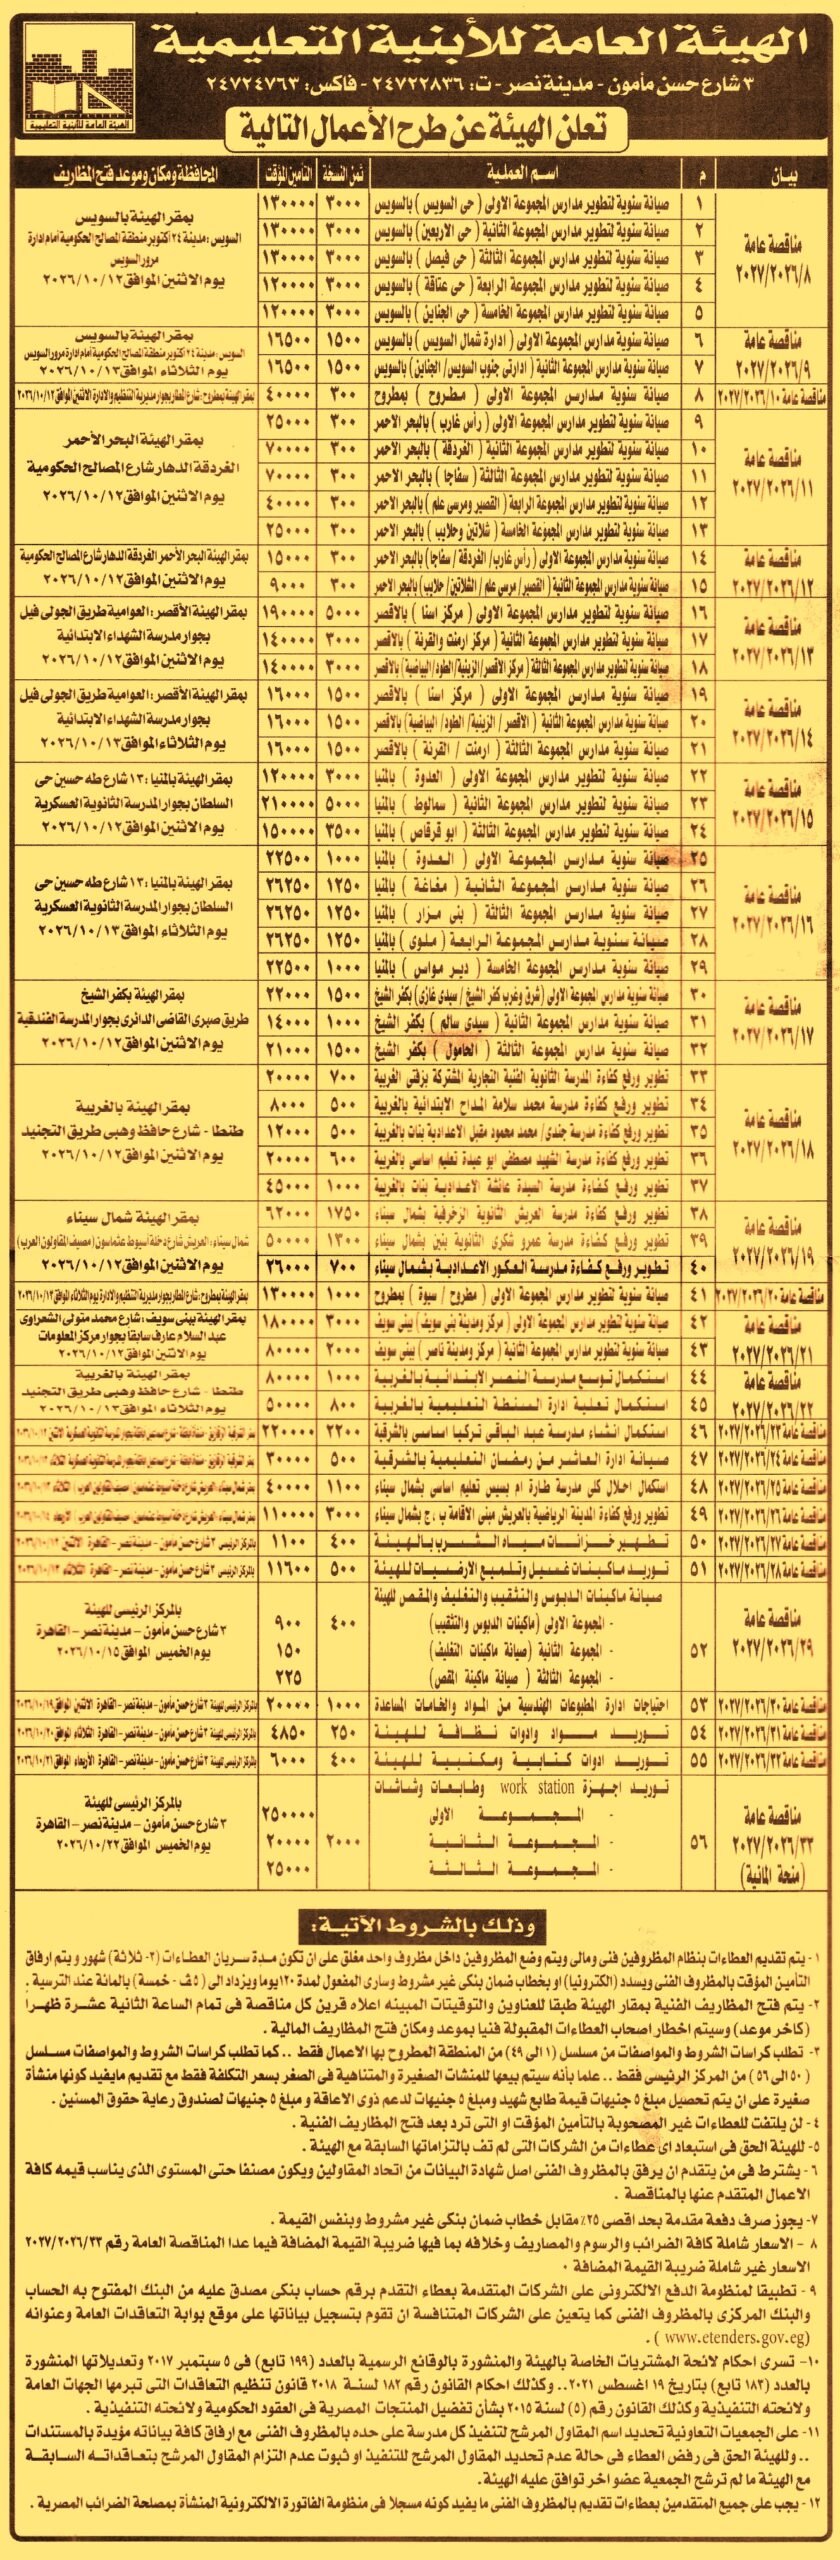 الهيئة العامة للأبنية التعليمية
٣ شارع حسن مأمون - مدينة نصر - ت: ٢٤٧٢٢٨٣٦ - فاكس: ٢٤٧٢٤٧٦٣
الهيئة العامة للأبنية التعليمية
تعلن الهيئة عن طرح الأعمال التالية
بيان م اسم العملية ثمن النسخة التأمين المؤقت المحافظة ومكان وموعد فتح المظاريف
مناقصة عامة ٢٠٢٧/٢٠٢٦/٨
١ صيانة سنوية لتطوير مدارس المجموعة الاولى ( حى السويس ) بالسويس ٣٠٠٠ ١٣٠٠٠٠
٢ صيانة سنوية لتطوير مدارس المجموعة الثانية ( حى الاربعين ) بالسويس ٣٠٠٠ ١٣٠٠٠٠
٣ صيانة سنوية لتطوير مدارس المجموعة الثالثة ( حى فيصل ) بالسويس ٣٠٠٠ ١٣٠٠٠٠
٤ صيانة سنوية لتطوير مدارس المجموعة الرابعة ( حى عتاقة ) بالسويس ٣٠٠٠ ١٢٠٠٠٠
٥ صيانة سنوية لتطوير مدارس المجموعة الخامسة ( حى الجناين ) بالسويس ٣٠٠٠ ١٢٠٠٠٠
بمقر الهيئة بالسويس
السويس : مدينة ٢٤ أكتوبر منطقة المصالح الحكومية أمام ادارة
مرور السويس
يوم الاثنين الموافق ٢٠٢٦/١٠/١٢
مناقصة عامة ٢٠٢٧/٢٠٢٦/٩
٦ صيانة سنوية مدارس المجموعة الاولى ( ادارة شمال السويس ) بالسويس ١٥٠٠ ١٦٥٠٠
٧ صيانة سنوية مدارس المجموعة الثانية ( ادارتى جنوب السويس/ الجناين ) بالسويس ١٥٠٠ ١٦٥٠٠
بمقر الهيئة بالسويس
السويس : مدينة ٢٤ أكتوبر منطقة المصالح الحكومية أمام ادارة مرور السويس
يوم الثلاثاء الموافق ٢٠٢٦/١٠/١٣
مناقصة عامة ٢٠٢٧/٢٠٢٦/١٠
٨ صيانة سنوية مدارس المجموعة الاولى ( مطروح ) بمطروح ٣٠٠ ٤٠٠٠٠
بمقر الهيئة بمطروح : شارع المطار بجوار مديرية التنظيم والادارة الاثنين الموافق ٢٠٢٦/١٠/١٢
مناقصة عامة ٢٠٢٧/٢٠٢٦/١١
٩ صيانة سنوية لتطوير مدارس المجموعة الاولى ( رأس غارب ) بالبحر الاحمر ٣٠٠ ٢٥٠٠٠
١٠ صيانة سنوية لتطوير مدارس المجموعة الثانية ( الغردقة ) بالبحر الاحمر ٣٠٠ ٧٠٠٠٠
١١ صيانة سنوية لتطوير مدارس المجموعة الثالثة ( سفاجا ) بالبحر الاحمر ٣٠٠ ٧٠٠٠٠
١٢ صيانة سنوية لتطوير مدارس المجموعة الرابعة ( القصير ومرسى علم ) بالبحر الاحمر ٣٠٠ ٤٠٠٠٠
١٣ صيانة سنوية لتطوير مدارس المجموعة الخامسة ( شلاتين وحلايب ) بالبحر الاحمر ٣٠٠ ٢٥٠٠٠
بمقر الهيئة البحر الأحمر
الغردقة الدهار شارع المصالح الحكومية
يوم الاثنين الموافق ٢٠٢٦/١٠/١٢
مناقصة عامة ٢٠٢٧/٢٠٢٦/١٢
١٤ صيانة سنوية مدارس المجموعة الاولى ( رأس غارب/ الغردقة / سفاجا) بالبحر الاحمر ٣٠٠ ١٥٠٠٠
١٥ صيانة سنوية مدارس المجموعة الثانية ( القصير/ مرسى علم / الشلاتين / حلايب ) بالبحر الاحمر ٣٠٠ ٩٠٠٠
بمقر الهيئة البحر الأحمر الغردقة الدهار شارع المصالح الحكومية
يوم الاثنين الموافق ٢٠٢٦/١٠/١٢
مناقصة عامة ٢٠٢٧/٢٠٢٦/١٣
١٦ صيانة سنوية لتطوير مدارس المجموعة الاولى ( مركز اسنا ) بالاقصر ٥٠٠٠ ١٩٠٠٠٠
١٧ صيانة سنوية لتطوير مدارس المجموعة الثانية ( مركز ارمنت والقرنة ) بالاقصر ٣٠٠٠ ١٤٠٠٠٠
١٨ صيانة سنوية لتطوير مدارس المجموعة الثالثة ( مركز الاقصر/ الزينية/ الطود/ البياضية) بالاقصر ٣٠٠٠ ١٤٠٠٠٠
بمقر الهيئة الأقصر : العوامية طريق الجولى فيل
بجوار مدرسة الشهداء الابتدائية
يوم الاثنين الموافق ٢٠٢٦/١٠/١٢
مناقصة عامة ٢٠٢٧/٢٠٢٦/١٤
١٩ صيانة سنوية مدارس المجموعة الاولى ( مركز اسنا ) بالاقصر ١٥٠٠ ١٦٠٠٠
٢٠ صيانة سنوية مدارس المجموعة الثانية ( الاقصر / الزينية/ الطود/ البياضية) بالاقصر ١٥٠٠ ١٦٠٠٠
٢١ صيانة سنوية مدارس المجموعة الثالثة ( ارمنت / القرنة ) بالاقصر ١٥٠٠ ١٦٠٠٠
بمقر الهيئة الأقصر : العوامية طريق الجولى فيل
بجوار مدرسة الشهداء الابتدائية
يوم الثلاثاء الموافق ٢٠٢٦/١٠/١٣
مناقصة عامة ٢٠٢٧/٢٠٢٦/١٥
٢٢ صيانة سنوية لتطوير مدارس المجموعة الاولى ( العدوة ) بالمنيا ٣٠٠٠ ١٢٠٠٠٠
٢٣ صيانة سنوية لتطوير مدارس المجموعة الثانية ( سمالوط ) بالمنيا ٥٠٠٠ ٢١٠٠٠٠
٢٤ صيانة سنوية لتطوير مدارس المجموعة الثالثة ( ابو قرقاص ) بالمنيا ٣٥٠٠ ١٥٠٠٠٠
بمقر الهيئة بالمنيا : ١٣ شارع طه حسين حى
السلطان بجوار المدرسة الثانوية العسكرية
يوم الاثنين الموافق ٢٠٢٦/١٠/١٢
مناقصة عامة ٢٠٢٧/٢٠٢٦/١٦
٢٥ صيانة سنوية مدارس المجموعة الاولى ( العدوة ) بالمنيا ١٠٠٠ ٢٢٥٠٠
٢٦ صيانة سنوية مدارس المجموعة الثانية ( مغاغة ) بالمنيا ١٢٥٠ ٢٦٢٥٠
٢٧ صيانة سنوية مدارس المجموعة الثالثة ( بنى مزار ) بالمنيا ١٢٥٠ ٢٦٢٥٠
٢٨ صيانة سنوية مدارس المجموعة الرابعة ( ملوى ) بالمنيا ١٢٥٠ ٢٦٢٥٠
٢٩ صيانة سنوية مدارس المجموعة الخامسة ( دير مواس ) بالمنيا ١٠٠٠ ٢٢٥٠٠
بمقر الهيئة بالمنيا : ١٣ شارع طه حسين حى
السلطان بجوار المدرسة الثانوية العسكرية
يوم الثلاثاء الموافق ٢٠٢٦/١٠/١٣
مناقصة عامة ٢٠٢٧/٢٠٢٦/١٧
٣٠ صيانة سنوية مدارس المجموعة الاولى ( شرق وغرب كفر الشيخ / سيدى غازى) بكفر الشيخ ١٥٠٠ ٢٢٠٠٠
٣١ صيانة سنوية مدارس المجموعة الثانية ( سيدي سالم ) بكفر الشيخ ١٠٠٠ ١٤٠٠٠
٣٢ صيانة سنوية مدارس المجموعة الثالثة ( الحامول ) بكفر الشيخ ١٥٠٠ ٢١٠٠٠
بمقر الهيئة بكفر الشيخ
طريق صبرى القاضى الدائرى بجوار المدرسة الفندقية
يوم الاثنين الموافق ٢٠٢٦/١٠/١٢
مناقصة عامة ٢٠٢٧/٢٠٢٦/١٨
٣٣ تطوير ورفع كفاءة المدرسة الثانوية الفنية التجارية المشتركة بزفتى الغربية ٧٠٠ ٢٠٠٠٠
٣٤ تطوير ورفع كفاءة مدرسة محمد سلامة المداح الابتدائية بالغربية ٥٠٠ ٨٠٠٠
٣٥ تطوير ورفع كفاءة مدرسة جندى/ محمد محمود مقبل الاعدادية بنات بالغربية ٥٠٠ ١٢٠٠٠
٣٦ تطوير ورفع كفاءة مدرسة الشهيد مصطفى ابو عيدة تعليم اساسى بالغربية ٦٠٠ ٢٠٠٠٠
٣٧ تطوير ورفع كفاءة مدرسة السيدة عائشة الاعدادية بنات بالغربية ١٠٠٠ ٤٥٠٠٠
بمقر الهيئة بالغربية
طنطا - شارع حافظ وهبى طريق التجنيد
يوم الاثنين الموافق ٢٠٢٦/١٠/١٢
مناقصة عامة ٢٠٢٧/٢٠٢٦/١٩
٣٨ تطوير ورفع كفاءة مدرسة العريش الثانوية الزخرفية بشمال سيناء ١٧٥٠ ٦٢٠٠٠
٣٩ تطوير ورفع كفاءة مدرسة عمرو شكرى الثانوية بنين بشمال سيناء ١٣٠٠ ٥٠٠٠٠
٤٠ تطوير ورفع كفاءة مدرسة العكور الاعدادية بشمال سيناء ٧٠٠ ٢٦٠٠٠
بمقر الهيئة شمال سيناء
شمال سيناء : العريش شارع دحلة أسيوط عثماسون ( مصيف المقاولون العرب)
يوم الاثنين الموافق ٢٠٢٦/١٠/١٢
مناقصة عامة ٢٠٢٧/٢٠٢٦/٢٠
٤١ صيانة سنوية لتطوير مدارس المجموعة الاولى ( مطروح / سيوة ) بمطروح ١٠٠٠ ١٣٠٠٠٠
بمقر الهيئة بمطروح : شارع المطار بجوار مديرية التنظيم والادارة يوم الثلاثاء الموافق ٢٠٢٦/١٠/١٣
مناقصة عامة ٢٠٢٧/٢٠٢٦/٢١
٤٢ صيانة سنوية لتطوير مدارس المجموعة الاولى ( مركز ومدينة بنى سويف ) بنى سويف ٣٠٠٠ ١٨٠٠٠٠
٤٣ صيانة سنوية لتطوير مدارس المجموعة الثانية ( مركز ومدينة ناصر ) ببنى سويف ٢٠٠٠ ٨٠٠٠٠
بمقر الهيئة ببنى سويف : شارع محمد متولى الشعراوى
عبد السلام عارف سابقا بجوار مركز المعلومات
يوم الاثنين الموافق ٢٠٢٦/١٠/١٢
مناقصة عامة ٢٠٢٧/٢٠٢٦/٢٢
٤٤ استكمال توسع مدرسة النصر الابتدائية بالغربية ١٠٠٠ ٨٠٠٠٠
٤٥ استكمال تعلية ادارة السنطة التعليمية بالغربية ٨٠٠ ٥٠٠٠٠
بمقر الهيئة بالغربية
طنطا - شارع حافظ وهبى طريق التجنيد
يوم الثلاثاء الموافق ٢٠٢٦/١٠/١٣
مناقصة عامة ٢٠٢٧/٢٠٢٦/٢٣
٤٦ استكمال انشاء مدرسة عبد الباقى تركيا اساسى بالشرقية ٢٢٠٠ ٢٢٠٠٠٠
مناقصة عامة ٢٠٢٧/٢٠٢٦/٢٤
٤٧ صيانة ادارة العاشر من رمضان التعليمية بالشرقية ٥٠٠ ٣٠٠٠٠
مناقصة عامة ٢٠٢٧/٢٠٢٦/٢٥
٤٨ استكمال احلال كلى مدرسة طارة ام بسيس تعليم اساسى بشمال سيناء ١١٠٠ ٤٠٠٠٠
مناقصة عامة ٢٠٢٧/٢٠٢٦/٢٦
٤٩ تطوير ورفع كفاءة المدينة الرياضية بالعريش مبنى الاقامة ب , ج بشمال سيناء ٣٠٠٠ ١١٠٠٠٠
مناقصة عامة ٢٠٢٧/٢٠٢٦/٢٧
٥٠ تطهير خزانات مياه الشرب بالهيئة ٤٠٠ ١١٠٠
بالمركز الرئيسى ٣ شارع حسن مأمون - مدينة نصر - القاهرة الاثنين ٢٠٢٦/١٠/١٢
مناقصة عامة ٢٠٢٧/٢٠٢٦/٢٨
٥١ توريد ماكينات غسيل وتلميع الارضيات للهيئة ٥٠٠ ١١٦٠٠
بالمركز الرئيسى ٣ شارع حسن مأمون - مدينة نصر - القاهرة الثلاثاء ٢٠٢٦/١٠/١٣
مناقصة عامة ٢٠٢٧/٢٠٢٦/٢٩
٥٢ صيانة ماكينات الدبوس والتثقيب والتغليف والمقص للهيئة ٤٠٠
- المجموعة الاولى (ماكينات الدبوس والتثقيب) ٩٠٠
- المجموعة الثانية (صيانة ماكينات التغليف) ١٥٠
- المجموعة الثالثة ( صيانة ماكينة المقص) ٢٢٥
بالمركز الرئيسى للهيئة
٣ شارع حسن مأمون - مدينة نصر - القاهرة
يوم الخميس الموافق ٢٠٢٦/١٠/١٥
مناقصة عامة ٢٠٢٧/٢٠٢٦/٣٠
٥٣ احتياجات ادارة المطبوعات الهندسية من المواد والخامات المساعدة ١٠٠٠ ٢٠٠٠٠
بالمركز الرئيسى للهيئة ٣ شارع حسن مأمون - مدينة نصر - القاهرة الاثنين الموافق ٢٠٢٦/١٠/١٩
مناقصة عامة ٢٠٢٧/٢٠٢٦/٣١
٥٤ توريد مواد وادوات نظافة للهيئة ٢٥٠ ٤٨٥٠
بالمركز الرئيسى للهيئة ٣ شارع حسن مأمون - مدينة نصر - القاهرة الثلاثاء الموافق ٢٠٢٦/١٠/٢٠
مناقصة عامة ٢٠٢٧/٢٠٢٦/٣٢
٥٥ توريد ادوات كتابية ومكتبية للهيئة ٤٠٠ ٦٠٠٠
بالمركز الرئيسى للهيئة ٣ شارع حسن مأمون - مدينة نصر - القاهرة الأربعاء الموافق ٢٠٢٦/١٠/٢١
مناقصة عامة ٢٠٢٧/٢٠٢٦/٣٣ (منحة المانية)
٥٦ توريد اجهزة work station وطابعات وشاشات ٢٠٠٠
- المجموعة الاولى ٢٥٠٠٠٠
- المجموعة الثانية ٢٠٠٠٠
- المجموعة الثالثة ٢٥٠٠٠
بالمركز الرئيسى للهيئة
٣ شارع حسن مأمون - مدينة نصر - القاهرة
يوم الخميس الموافق ٢٠٢٦/١٠/٢٢
وذلك بالشروط الآتية:
١- يتم تقديم العطاءات بنظام المظروفين فنى ومالى ويتم وضع المظروفين داخل مظروف واحد مغلق على ان تكون مدة سريان العطاءات (٣- ثلاثة) شهور و يتم ارفاق
التأمين المؤقت بالمظروف الفنى ويسدد (الكترونيا) او بخطاب ضمان بنكى غير مشروط وسارى المفعول لمدة ١٢٠ يوما ويزداد الى (٥٪ - خمسة) بالمائة عند الترسية .
٢- يتم فتح المظاريف الفنية بمقار الهيئة طبقا للعناوين والتوقيتات المبينه اعلاه قرين كل مناقصة فى تمام الساعة الثانية عشرة ظهرا
(كاخر موعد) وسيتم اخطار اصحاب العطاءات المقبولة فنيا بموعد ومكان فتح المظاريف المالية .
٣- تطلب كراسات الشروط والمواصفات من مسلسل (١ الى ٤٩) من المنطقة المطروح بها الاعمال فقط .. كما تطلب كراسات الشروط والمواصفات مسلسل
(٥٠ الى ٥٦) من المركز الرئيسى فقط .. علما بأنه سيتم بيعها للمنشات الصغيرة والمتناهية فى الصغر بسعر التكلفة فقط مع تقديم مايفيد كونها منشأة
صغيرة على ان يتم تحصيل مبلغ ٥ جنيهات قيمة طابع شهيد ومبلغ ٥ جنيهات لدعم ذوى الاعاقة و مبلغ ٥ جنيهات لصندوق رعاية حقوق المسنين .
٤- لن يلتفت للعطاءات غير المصحوبة بالتأمين المؤقت او التى ترد بعد فتح المظاريف الفنية .
٥- للهيئة الحق فى استبعاد اى عطاءات من الشركات التى لم تف بالتزاماتها السابقة مع الهيئة .
٦- يشترط فى من يتقدم ان يرفق بالمظروف الفنى اصل شهادة البيانات من اتحاد المقاولين ويكون مصنفا حتى المستوى الذى يناسب قيمه كافة
الاعمال المتقدم عنها بالمناقصة .
٧- يجوز صرف دفعة مقدمة بحد اقصى ٢٥٪ مقابل خطاب ضمان بنكى غير مشروط وبنفس القيمة .
٨- الاسعار شاملة كافة الضرائب والرسوم والمصاريف وخلافه بما فيها ضريبة القيمة المضافة فيما عدا المناقصة العامة رقم ٢٠٢٧/٢٠٢٦/٣٣
الاسعار غير شاملة ضريبة القيمة المضافة .
٩- تطبيقا لمنظومة الدفع الالكترونى على الشركات المتقدمة بعطاء التقدم برقم حساب بنكى مصدق عليه من البنك المفتوح به الحساب
والبنك المركزى بالمظروف الفنى كما يتعين على الشركات المتنافسة ان تقوم بتسجيل بياناتها على موقع بوابة التعاقدات العامة وعنوانه
(www.etenders.gov.eg ) .
١٠- تسرى احكام لائحة المشتريات الخاصة بالهيئة والمنشورة بالوقائع الرسمية بالعدد (١٩٩ تابع) فى ٥ سبتمبر ٢٠١٧ وتعديلاتها المنشورة
بالعدد (١٨٣ تابع) بتاريخ ١٩ اغسطس ٢٠٢١ .. وكذلك احكام القانون رقم ١٨٢ لسنة ٢٠١٨ قانون تنظيم التعاقدات التى تبرمها الجهات العامة
ولائحته التنفيذية وكذلك القانون رقم (٥) لسنة ٢٠١٥ بشأن تفضيل المنتجات المصرية فى العقود الحكومية ولائحته التنفيذية .
١١- على الجمعيات التعاونية تحديد اسم المقاول المرشح لتنفيذ كل مدرسة على حده بالمظروف الفنى مع ارفاق كافة بياناته مؤيدة بالمستندات
.. وللهيئة الحق فى رفض العطاء فى حالة عدم تحديد المقاول المرشح للتنفيذ او ثبوت عدم التزام المقاول المرشح بتعاقداته السابقة
مع الهيئة ما لم ترشح الجمعية عضو اخر توافق عليه الهيئة.
١٢- يجب على جميع المتقدمين بعطاءات تقديم بالمظروف الفنى ما يفيد كونه مسجلا فى منظومة الفاتورة الالكترونية المنشأة بمصلحة الضرائب المصرية .